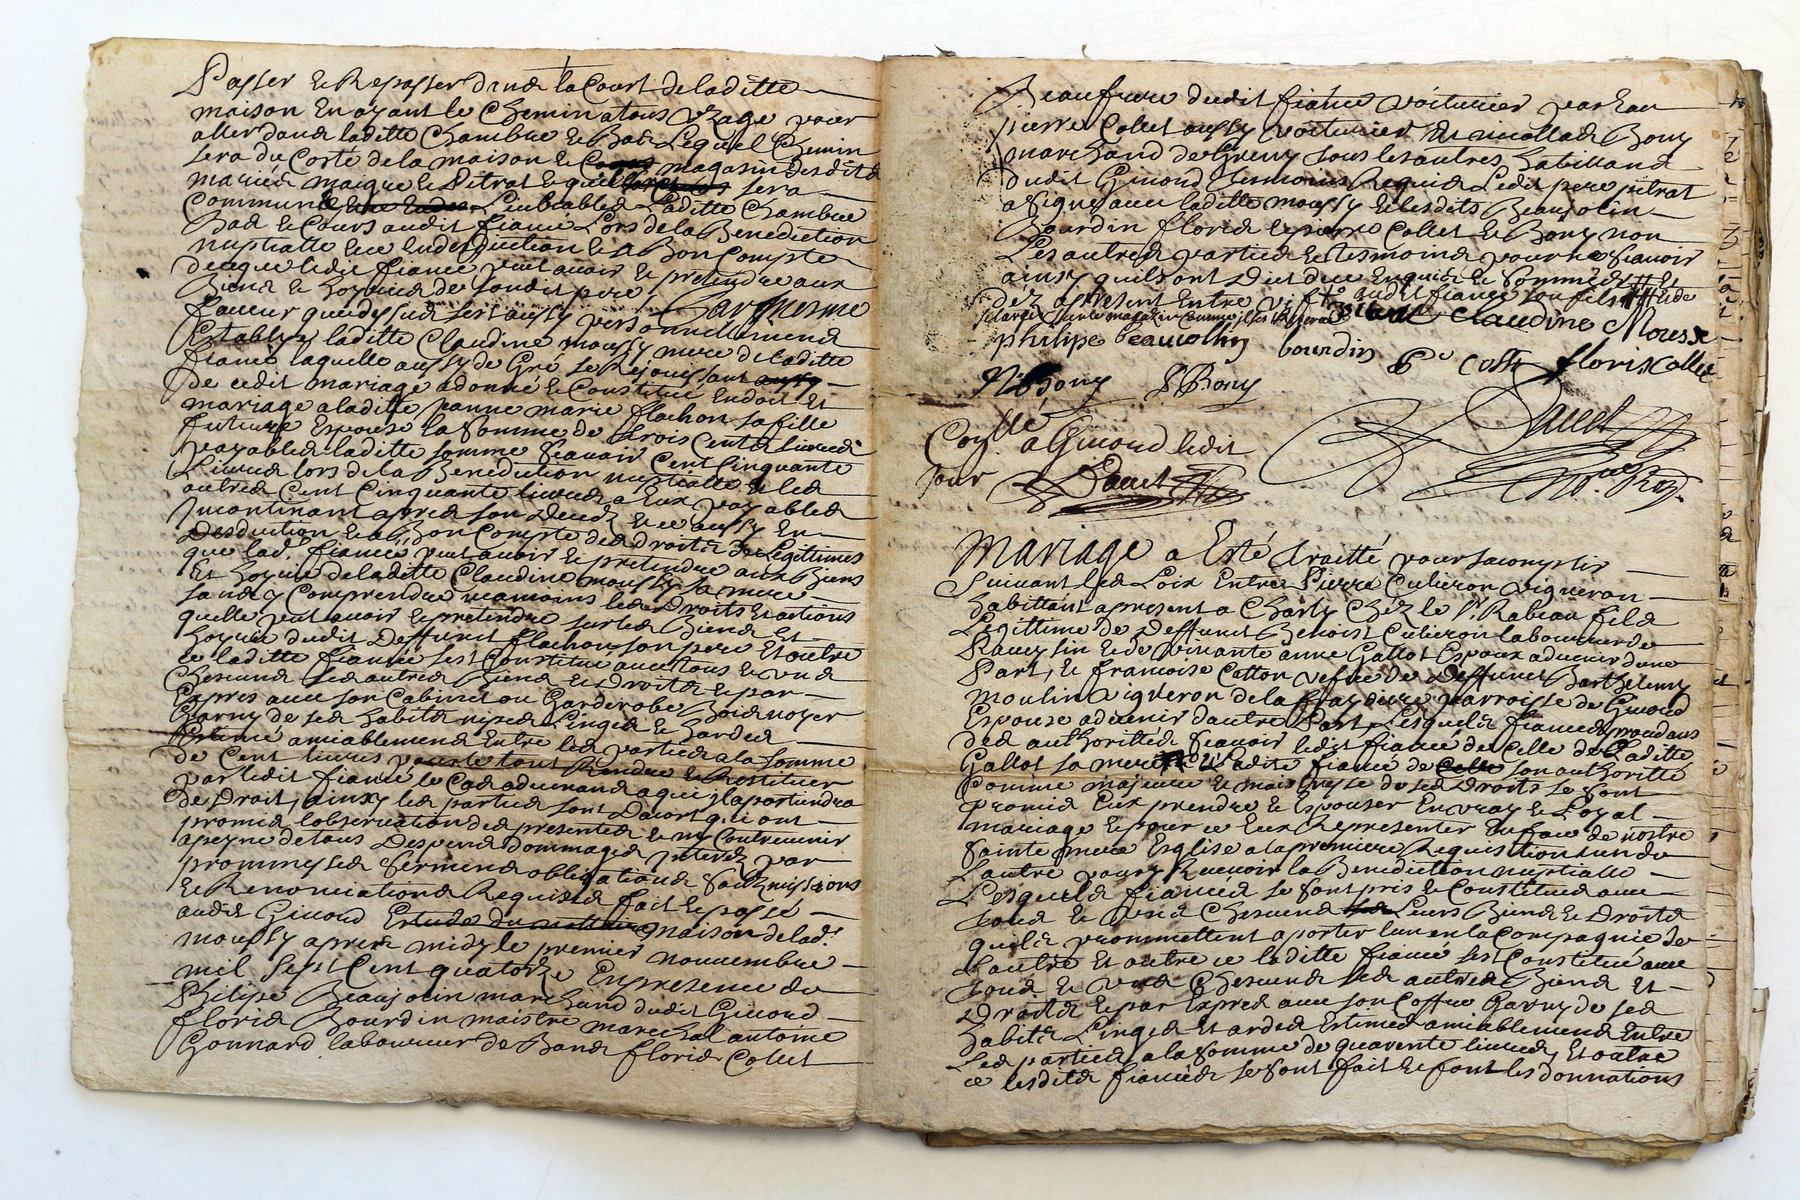 Passer & Repasser dans la Court de laditte
maison En ayant le Chemin a tous Uzage pour
aller dans laditte Chambre & Bas Lequel Chemin
sera du Costé de la maison & magasin desdits
mariés & Pitrat sera
Commune laditte Chambre
Bas & Cours audit fiancé Lors de la Benediction
nuptialle & ce En desduction & a Bon Compte
de ce que ledit fiancé peut avoir & pretendre aux
Biens & hoyries de sondit pere Par mesme
faveur que dessus sest aussy personnellement
Establye laditte Claudine moussy mere de laditte
fiancée laquelle aussy de Gré se Rejouissant
de cedit mariage a donné & Constitué En dot Et
mariage a laditte Janne marie flachon sa fille
future Espouse la somme de trois Cents livres
payables laditte somme scavoir Cent Cinquante
Livres lors de la Benediction nuptialle & les
autres Cent Cinquante livres a Eux payables
Incontinant apres son deceds & ce aussy En
Desduction & a Bon Compte des droits & Legitimes
que lad. fiancée peut avoir & pretendre aux Biens
Et hoyrie de laditte Claudine moussy sa mere
sans y Comprendre neamoins les Droits Et actions
quelle peut avoir & pretendre sur les Biens Et
hoyrie dudit Deffunct flachon son pere Et outre
ce laditte fiancée sest Constitué avec tous & uns
Chescuns ses autres Biens & Droits & par
Expres avec son Cabinet ou Garderobe Bois noyer
Garny de ses habits nipes Linges & hardes
Estimé amiablement Entre les parties a la somme
de Cent livres pour le tout Rendre & Restituer
par ledit fiancé le Cas advenant a qui Il apartiendra
de Droit, ainsy les parties sont Dacort qui ont
promis lobservation des presentes & ny Contrevenir
a peyne de tous Despens dommages Interets par
prommesses serment obligations soubmissions
& Renonciations Requises fait & passé
audit Givord maison de lad.
moussy apres midy le premier novembre
mil sept Cent quatorze En presence de
Philipe Beaujolin marchand dudit Givord
floris Bourdin maistre marechal antoine
Gonnard laboureur de Bans floris Collet
Beaufrere dudit fiancé voiturier par Eau
pierre Collet aussy voiturier & Bony
marchand de tous les autres habittans
dudit Givord tesmoins Requis Ledit pere pitrat
a signé avec laditte moussy & lesdits Beaujolin
Bourdin floris & pierre Collet & Bony non
Les autres parties & tesmoins pour ne scavoir
ainsy quils ont Dict de ce Enquis & Sommés
dez apresent Entre vifs audit fiancé son fils
pitrat Claudine Mousse
philipe beaujollin bourdin P Collet floris Collet
Bony Bony
Con.llé a Givord ledit
jour Dauet
Dauet
No.re Roy.
Mariage a Esté traitté pour sacomplir
Suivant les Loix Entre Pierre Cuzieron vigneron
habittant apresent a Charly Chez le Sr Rabeau fils
Legittime de Deffunct Benoist Cuzieron laboureur de
& de vivante anne Gallot Espoux advenir dune
Part, & francoise Cotton vefve de Deffunct Barthelemy
Moulin vigneron de la parroisse de Givord
Espouse advenir dautre Part, Lesquels fiancés procedans
des authorittés scavoir ledit fiancé de celle de laditte
Gallot sa mere & ladite fiancée de son authoritté
Comme majeure & maistresse de ses Droits se sont
promis Eux prendre & Espouser En vray & Loyal
mariage & pour ce Eux Representer En face de nostre
Sainte mere Esglise a la premiere Requisition lun de
lautre pour y Recevoir la Benediction nuptialle
Lesquels fiancés se sont pris & Constitués avec
tous & uns Chescuns Leurs Biens & Droits
quils prommettent aporter lun en la Compagnie de
Lautre Et outre ce laditte fiancée sest Constitué avec
tous & uns Chescuns ses autres Biens Et
Droits & par Expres avec son Coffre Garny de ses
habits Linges Et ardes Estimés amiablement Entre
Les parties a la somme de quarente livres, Et outre
ce lesdits fiancés se sont fait & font les donnations